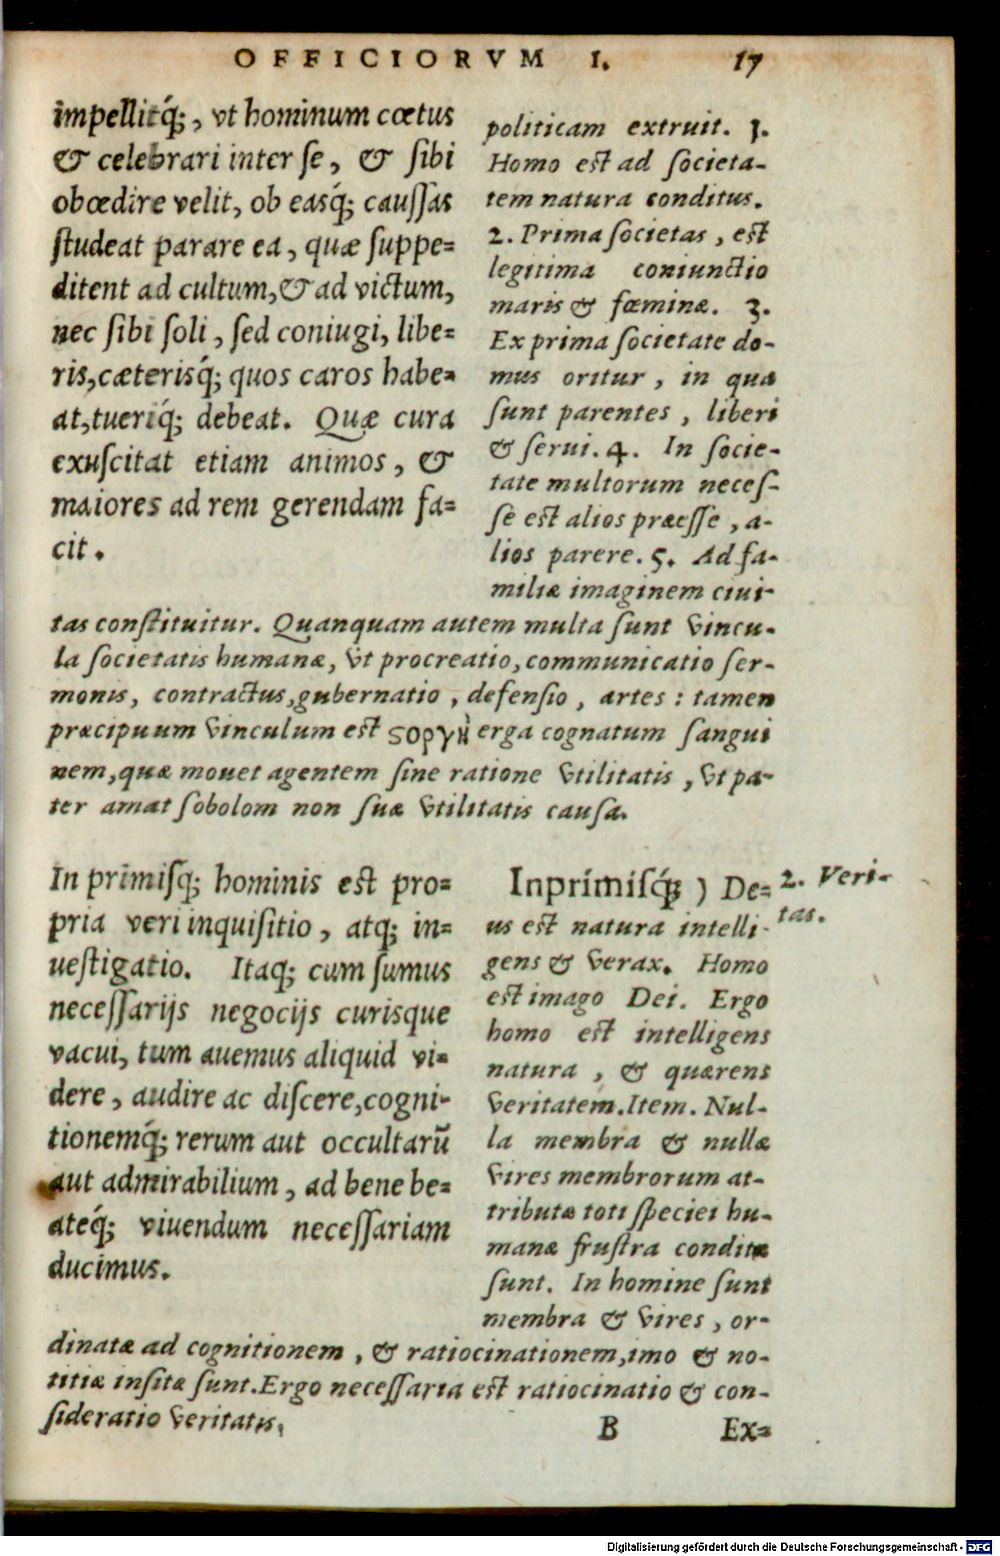 OFFICIORVM I. 17
impellitq́;, vt hominum cœtus
& celebrari inter se, & sibi
obœdire velit, ob easq́; caussas
studeat parare ea, quæ suppe=
ditent ad cultum, & ad victum,
nec sibi soli, sed coniugi, libe=
ris, cæterisq́; quos caros habe=
at, tueriq́; debeat. Quæ cura
exuscitat etiam animos, &
maiores ad rem gerendam fa=
cit.
politicam extruit. 1.
Homo est ad societa-
tem natura conditus.
2. Prima societas, est
legitima coniunctio
maris & fœminæ. 3.
Ex prima societate do-
mus oritur, in qua
sunt parentes, liberi
& serui. 4. In socie-
tate multorum neces-
se est alios præesse, a-
lios parere. 5. Ad fa-
miliæ imaginem ciui-
tas constituitur. Quanquam autem multa sunt vincu-
la societatis humanæ, vt procreatio, communicatio ser-
monis, contractus, gubernatio, defensio, artes: tamen
præcipuum vinculum est ϛοργὴ erga cognatum sangui
nem, quæ mouet agentem sine ratione vtilitatis, vt pa-
ter amat sobolom non suæ vtilitatis causa.
In primisq́; hominis est pro=
pria veri inquisitio, atq; in=
uestigatio. Itaq; cum sumus
necessarijs negocijs curisque
vacui, tum auemus aliquid vi=
dere, audire ac discere, cogni-
tionemq́; rerum aut occultarũ
aut admirabilium, ad bene be=
ateq́; viuendum necessariam
ducimus.
Inprimisq́; ) De=
us est natura intelli-
gens & verax. Homo
est imago Dei. Ergo
homo est intelligens
natura, & quærens
veritatem. Item. Nul-
la membra & nullæ
vires membrorum at-
tributæ toti speciei hu-
manæ frustra conditæ
sunt. In homine sunt
membra & vires, or-
2. Veri-
tas.
dinatæ ad cognitionem, & ratiocinationem, imo & no-
titiæ insitæ sunt. Ergo necessaria est ratiocinatio & con-
sideratio veritatis.
B Ex=
Digitalisierung gefördert durch die Deutsche Forschungsgemeinschaft - DFG